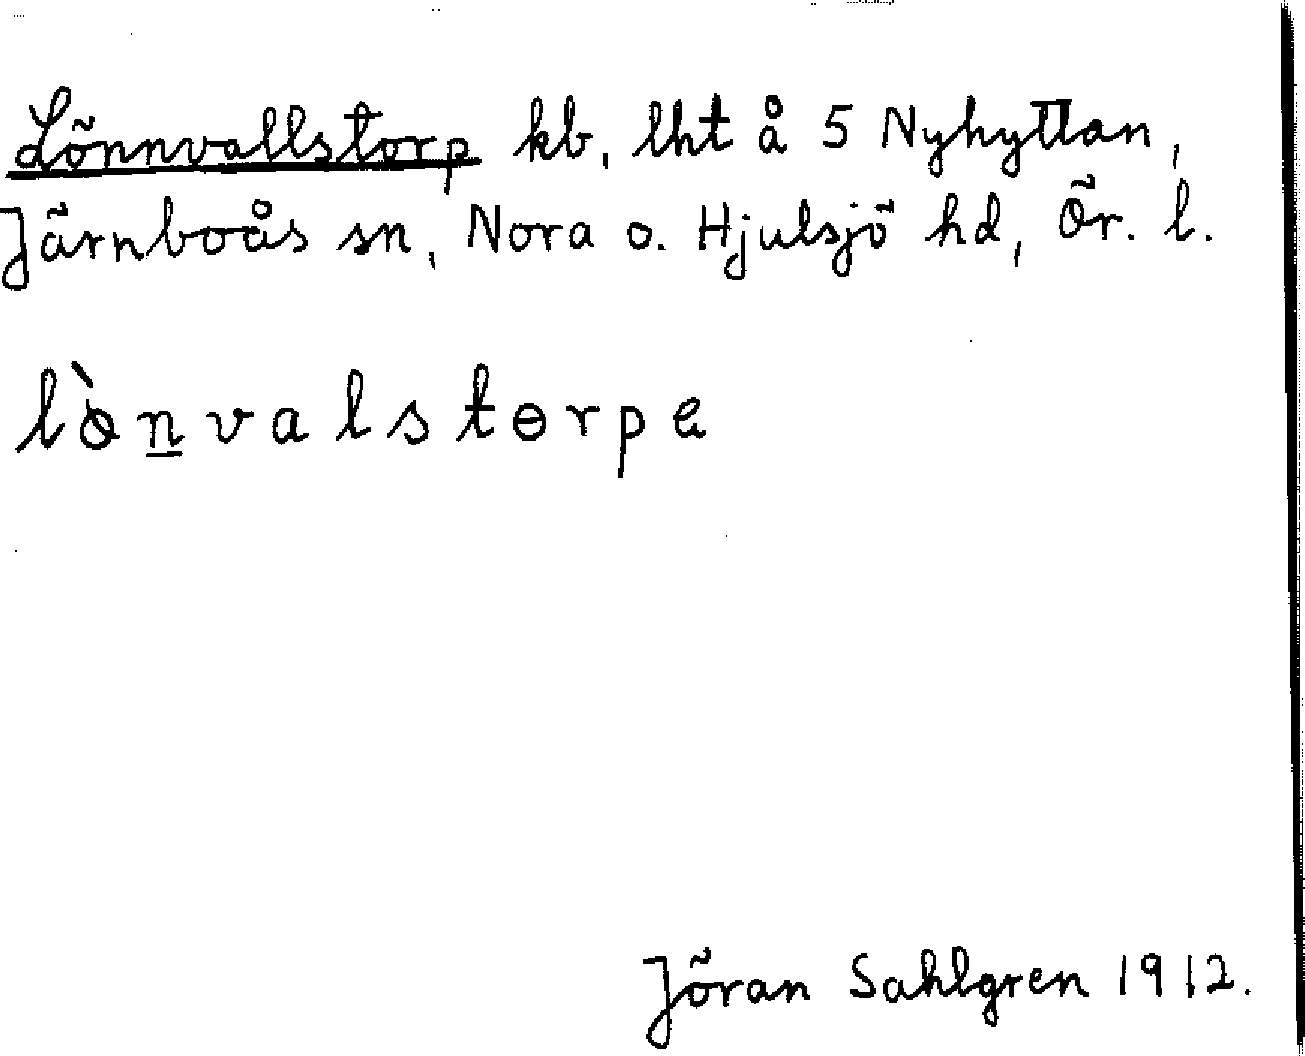 Lönnvallstorp kb, lht å 5 Nyhyttan,
Järnboås sn, Nora o. Hjulsjö hd, Ör. l.
lòn̲valstɵrpe
Jöran Sahlgren 1912.